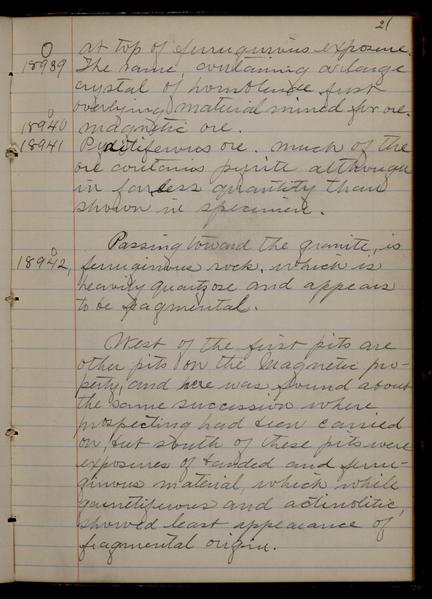 21
at top of ferruginous exposure.
O
18939 The same, containing a large
crystal of hornblende just
overlying material mined for ore.
O
18940 magnetic ore.
18941 Pyritiferous ore. much of the
ore contains pyrite although
in far less quantity than
shown in specimen.
Passing toward the granite, is
O
18942, ferruginous rock, which is
heavily quartzose and appears
to be fragmental.
West of the first pits are
other pits on the Magnetic pro-
perty, and here was found about
the same succession where
prospecting had been carried
on, but south of these pits were
exposures of banded and ferru-
ginous material, which while
garnetiferous and actinolitic,
showed least appearance of
fragmental origin.